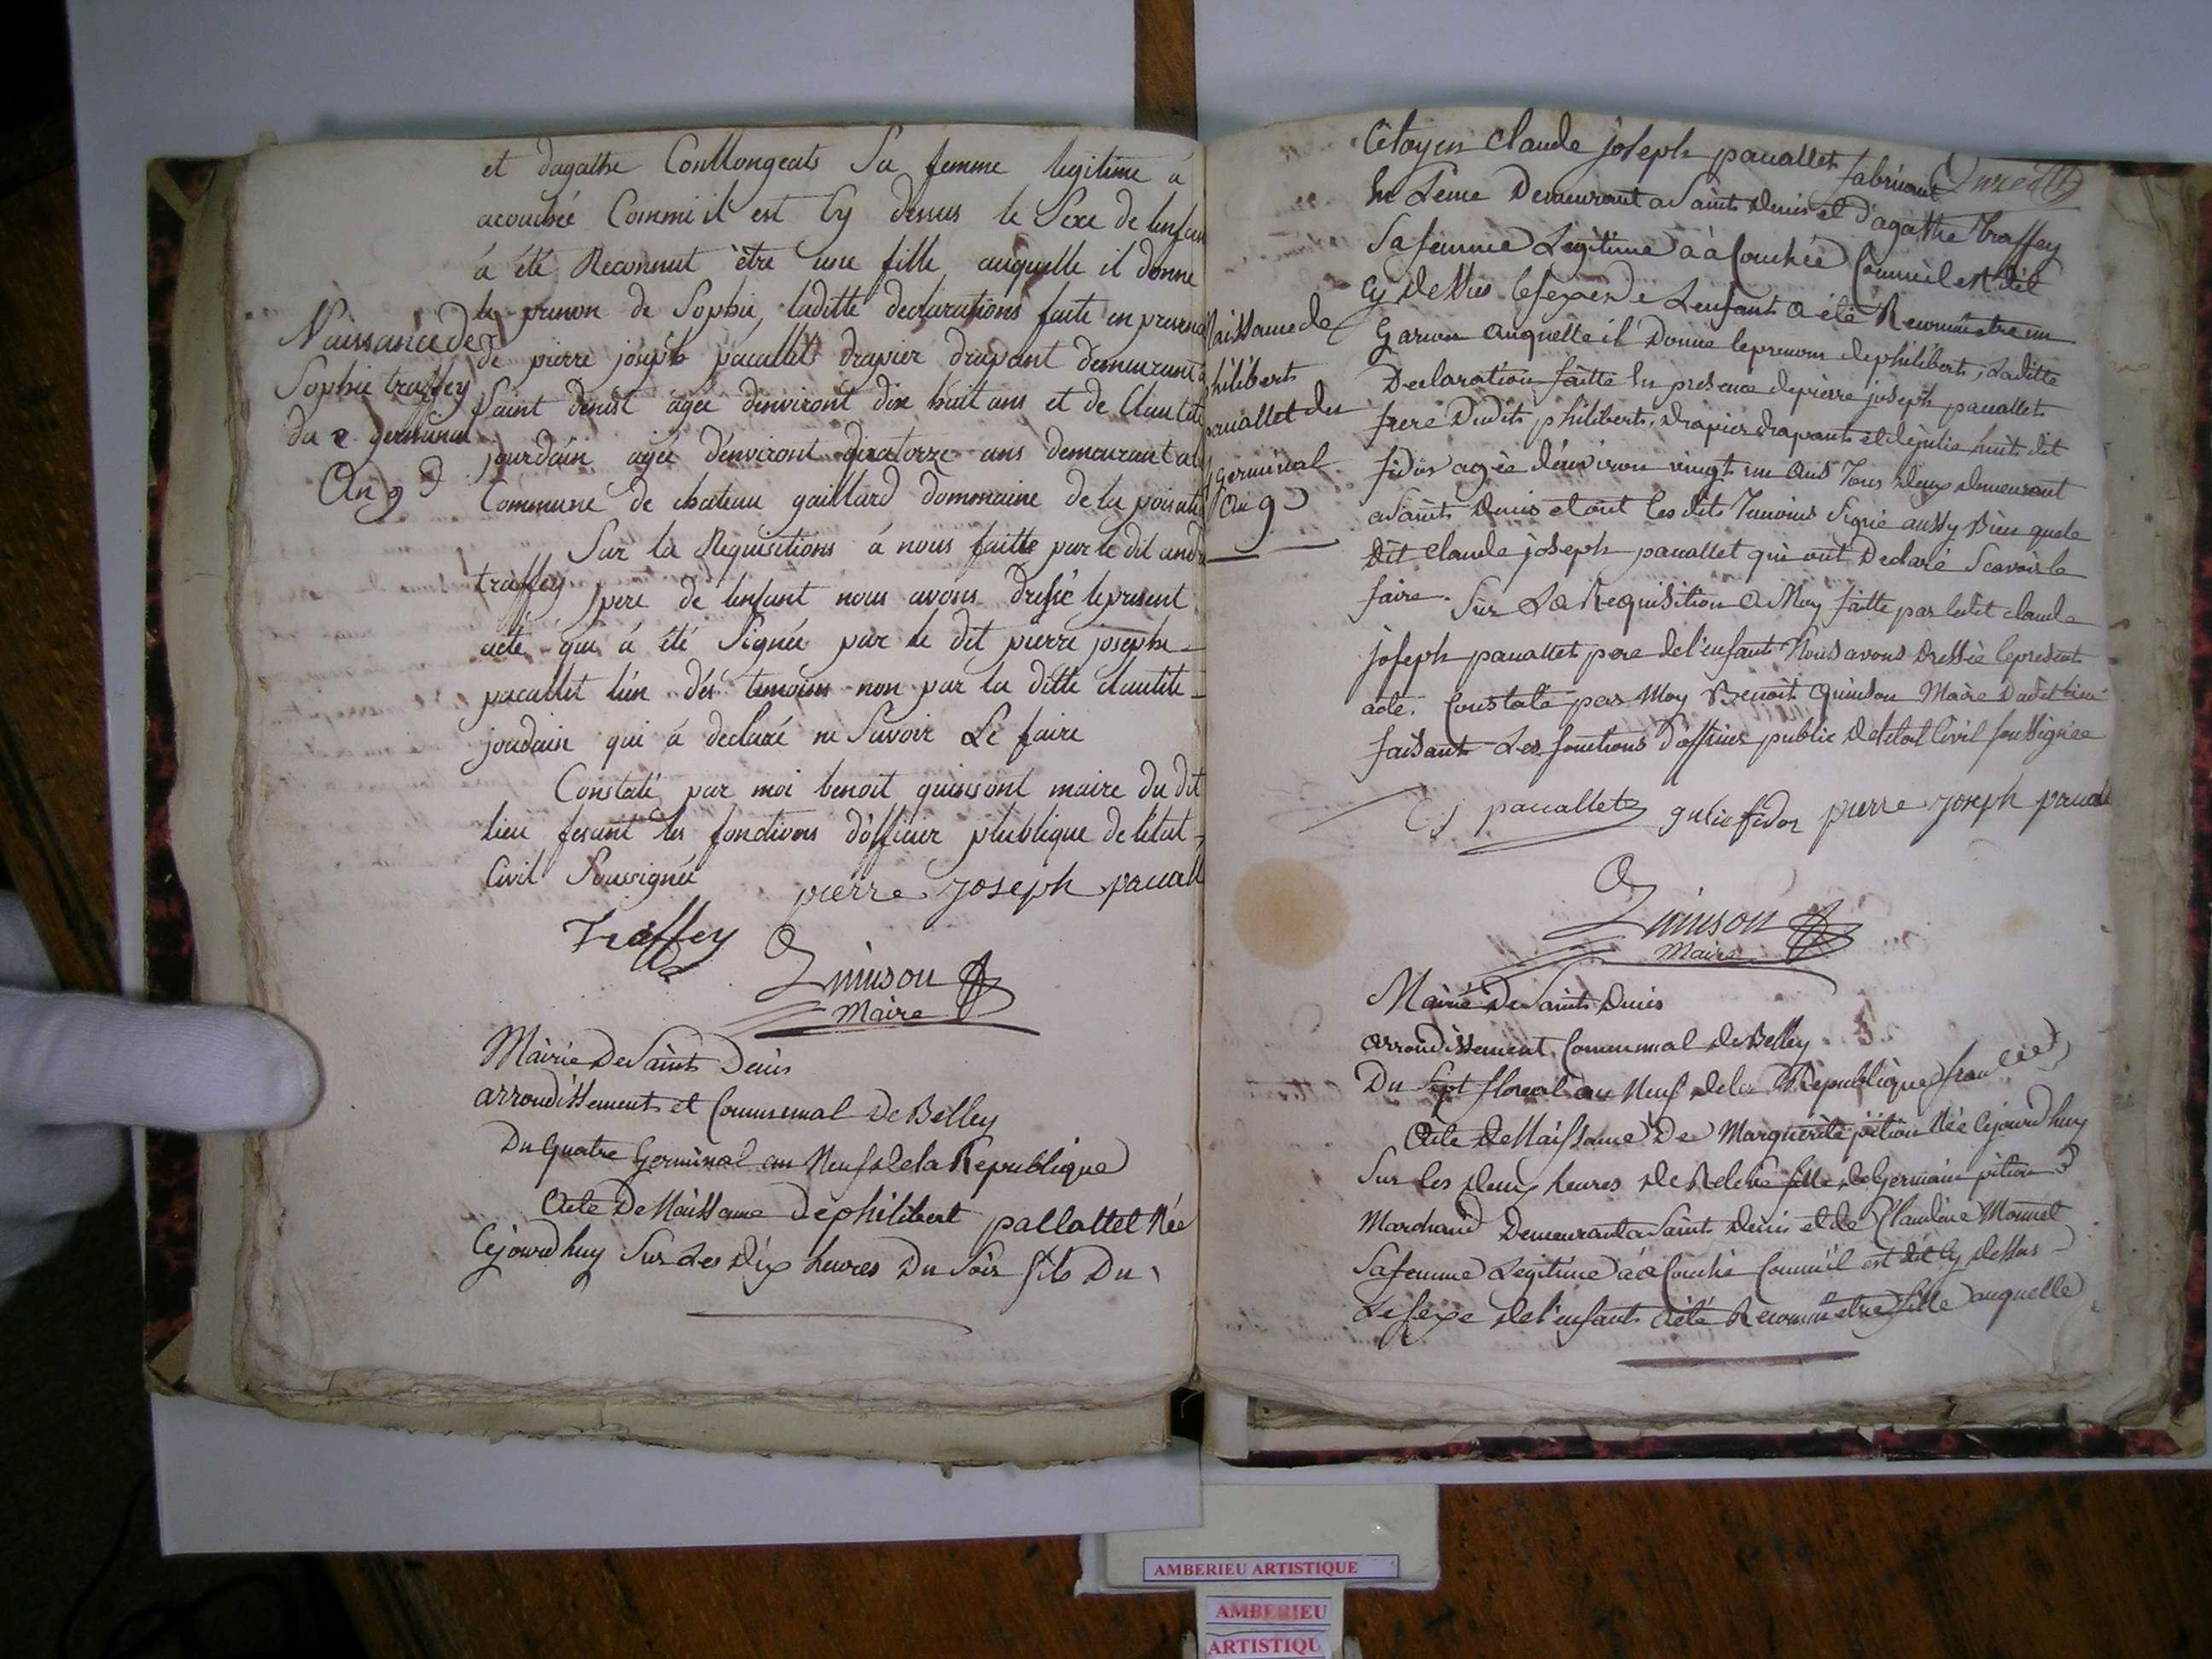 et dagathe Conllongeats Sa femme legitime à
acouchée Comme il est Cy dessus le Sexe de lenfan
à été Reconnut être une fille auquelle il donne
le prenon de Sophie, laditte declarations faite en presena
Naissance de
Sophie traffey
du 2 germinal
An 9
de pierre joseph pacallet drapier drapant demeurant a
Saint denist agée denviront dix huit ans et de Clautite
jourdain agée d'environt quatorze ans demeurant au
Commune de chateau gaillard dommaine de la
Sur la Requisitions à nous faitte par le dit andré
traffey pere de lenfant nous avons dressé le present
acte qui à été Signée par le dit pierre josephe
pacallet lún dés temoins non par la ditte clautite
joudain qui à declaré ne Savoir Le faire
Constaté par moi benoit quinsont maire du dit
lieu fesant les fonctions d'officier plublique de létat
Civil Soussignée
pierre joseph pacall
Traffey
Quinson
Maire
Mairie De Saint Denis
arrondissement et Communal De Belley
Du quatre Germinal an Neuf de la Republique
Acte De Naissance De philibert pallattet Née
Cejourd huy Sur Les Dix heures Du Soir fils Du
Citoyen Claude joseph pacallet fabricant
En Demeurant a Saint Denis et d'agathe traffey
Sa femme Legitime a à Couchée Comme il est dit
Cy dessus le sexe de L'enfant a été Reconnu etre un
Garcon auquelle il Donne le prenom de philibert, Laditte
Declaration faitte En presence de pierre joseph pacallet
frere Dudit philibert, Drapier drapant et de julie huit dit
fidor agée d'environ vingt un ans Tous deux demeurant
a Saint Denis et ont les dits Temoins Signé aussy Bien que le
Dit Claude joseph pacallet qui ont Declaré Scavoir le
faire. Sur La Requisition a Moy faitte par ledit claude
joseph pacallet pere de l'enfant Nous avons Dressée le present
acte. Constaté par Moy Benoit Quinson Maire Dudit lieu
faisant Les fonctions d'officier public de l'etat Civil soussignée
Naissance de
philibert
pacallet du
4 Germinal
an 9
C j pacallet julie fidor pierre joseph pacall
Quinson
Maire
Mairie De Saint Denis
arrondissement Communal de Belley
Du Sept floreal an Neuf de la Republique
Acte De Naissance De Marguerite pition Née Cejourd huy
Sur les deux heures de fille de Germain pition
Marchand Demeurant a Saint Denis et de Claudine Monnet
Sa femme Legitime a à Couché Comme il est dit Cy dessus
Le sexe de l'enfant a été Reconnu etre fille auquelle
AMBERIEU ARTISTIQUE
AMBERIEU
ARTISTIQU